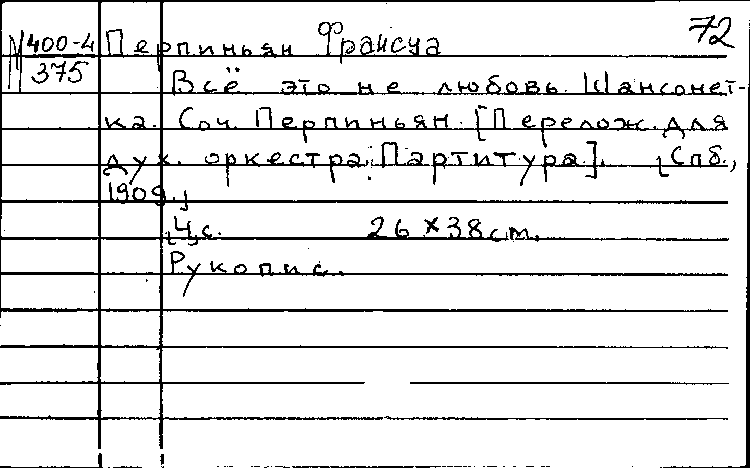 72
М 400-4
375
Перпиньян Франсуа
Всё это не любовь. Шансонет-
ка. Соч. Перпиньян. [Перелож. для
дух. оркестра. Партитура]. [Спб.,
1909.]
[4] с. 26 × 38 см.
Рукопис.